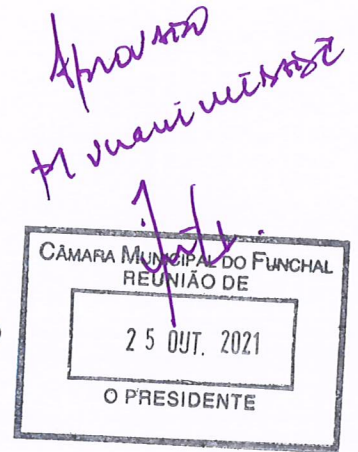 Aprovado
P/ unanimidade
CÂMARA MUNICIPAL DO FUNCHAL
REUNIÃO DE
25 OUT. 2021
O PRESIDENTE